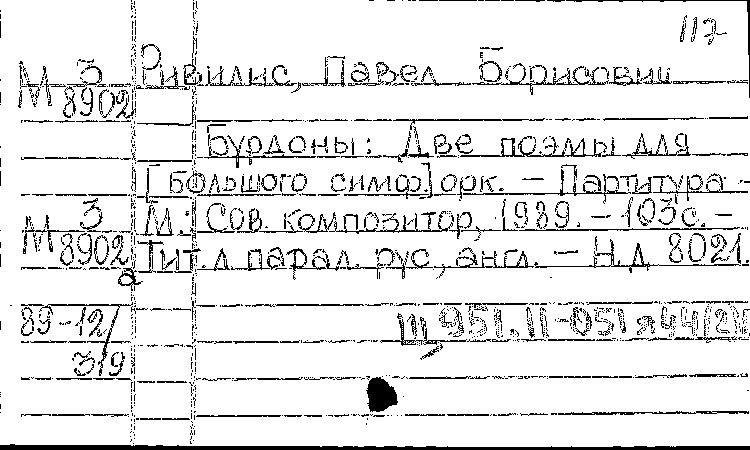 117
М 3/8902 Ривилис, Павел Борисович
Бурдоны: Две поэмы для
[большого симф] орк. — Партитура —
М 3/8902а М.: Сов. композитор, 1989. — 103 с. —
Тит. л. парал. рус., англ. — Н.д. 8021.
89-12/
319
Щ 951.11-051 я44(2)